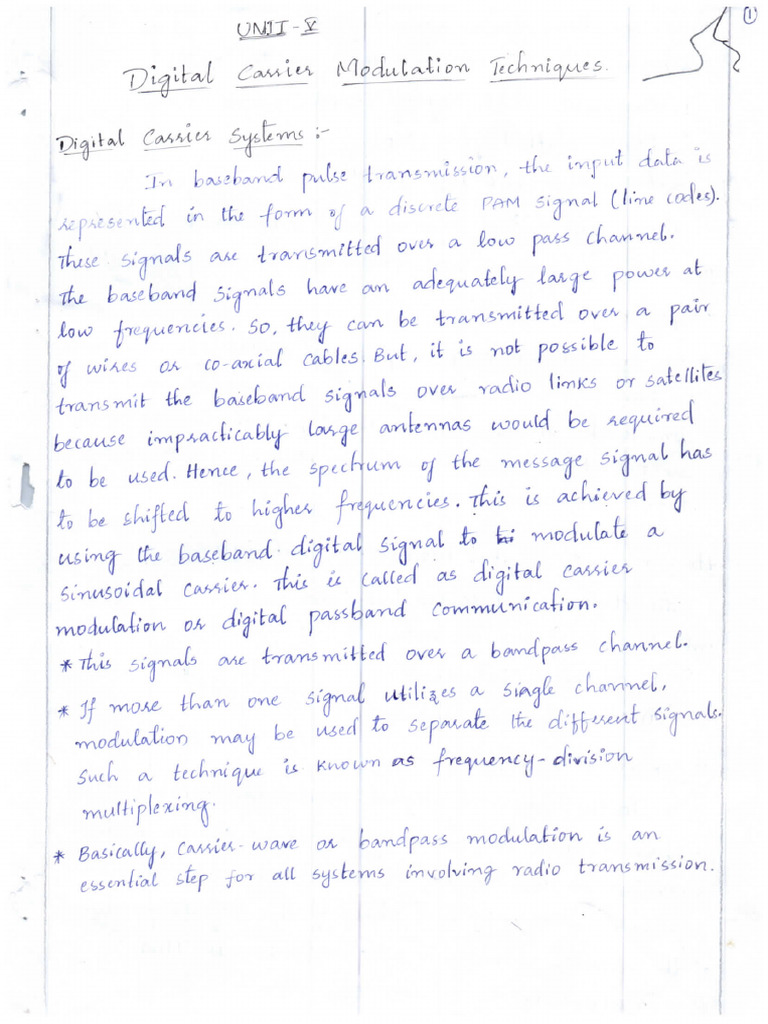 1
UNIT-V
Digital Carrier Modulation Techniques.
Digital Carrier Systems :-
In baseband pulse transmission, the input data is
represented in the form of a discrete PAM signal (line codes).
These signals are transmitted over a low pass channel.
The baseband signals have an adequately large power at
low frequencies. So, they can be transmitted over a pair
of wires or co-axial cables. But, it is not possible to
transmit the baseband signals over radio links or satellites
because impracticably large antennas would be required
to be used. Hence, the spectrum of the message signal has
to be shifted to higher frequencies. This is achieved by
using the baseband digital signal to modulate a
sinusoidal carrier. This is called as digital carrier
modulation or digital passband communication.
* This signals are transmitted over a bandpass channel.
* If more than one signal utilizes a single channel,
modulation may be used to separate the different signals.
Such a technique is known as frequency-division
multiplexing.
* Basically, carrier-wave or bandpass modulation is an
essential step for all systems involving radio transmission.